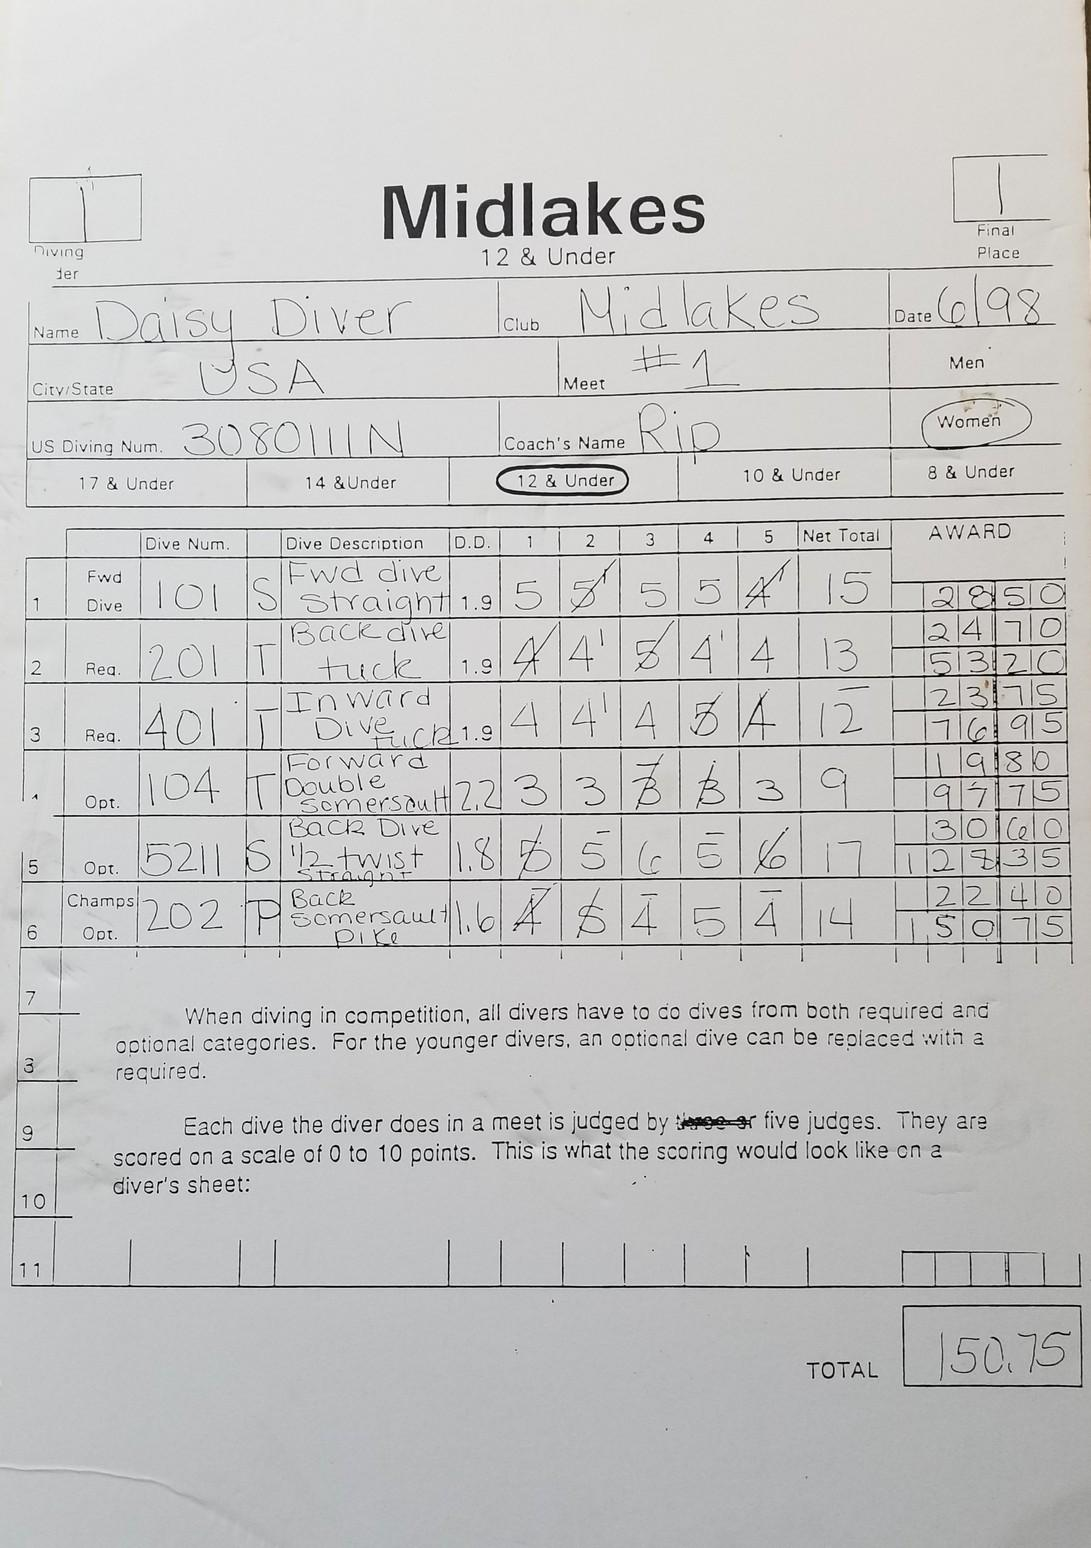 1
Midlakes
1
12 & Under
Diving
der
Final
Place
Name Daisy Diver Club Midlakes Date 6/98
City/State USA Meet #1 Men
US Diving Num. 3080111N Coach's Name Rip Women
17 & Under 14 &Under 12 & Under 10 & Under 8 & Under
Dive Num. Dive Description D.D. 1 2 3 4 5 Net Total AWARD
1 Fwd Dive 101 S Fwd dive straight 1.9 5 5' 5 5 4' 15 28 50
2 Req. 201 T Back dive tuck 1.9 4 4' 5 4' 4 13 24 70
53 20
3 Req. 401 T Inward Dive tuck 1.9 4 4' 4 5 4 12 23 75
76 95
Opt. 104 T Forward Double somersault 2.2 3 3 3 3 3 9 19 80
97 75
5 Opt. 5211 S Back Dive 1/2 twist straight 1.8 5 5 6 5 6 17 30 60
128 35
6 Champs Opt. 202 P Back somersault pike 1.6 4 5 4 5 4 14 22 40
150 75
7
When diving in competition, all divers have to do dives from both required and
optional categories. For the younger divers, an optional dive can be replaced with a
required.
9
Each dive the diver does in a meet is judged by three or five judges. They are
scored on a scale of 0 to 10 points. This is what the scoring would look like on a
diver's sheet:
10
11
TOTAL 150.75